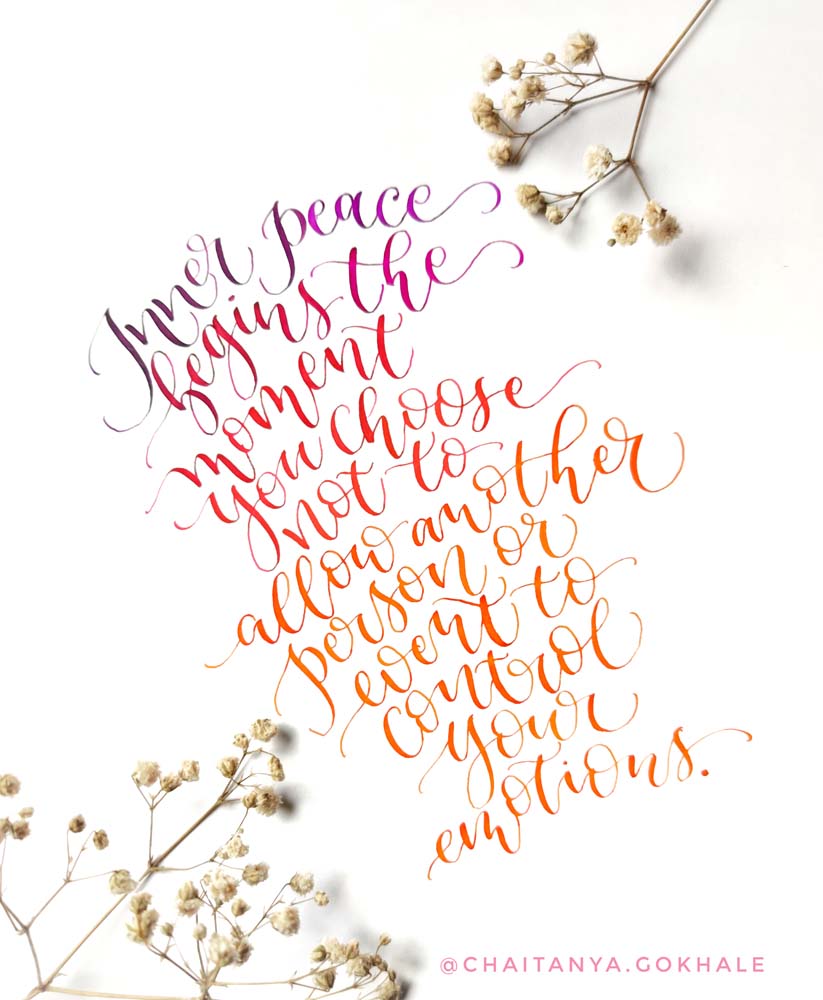 Inner peace
begins the
moment
you choose
not to
allow another
person or
event to
control
your
emotions.
@CHAITANYA.GOKHALE